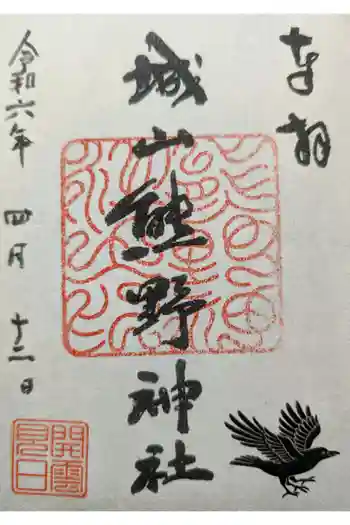 奉拝
城山熊野神社
令和六年 四月 十二日
開雲
見日